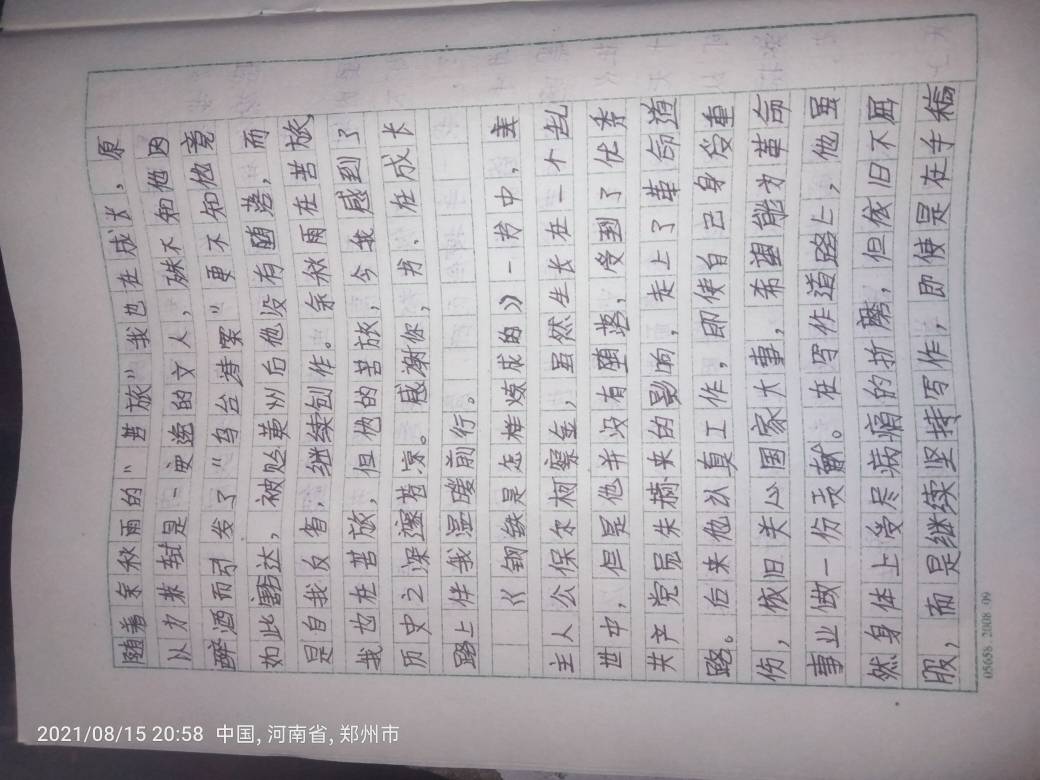 随着余秋雨的“苦旅”我也在成长，原
以为来轼是一豪逸的文人，殊不知他因
醉酒而引发了“乌台诗案”更不知他竟
如此豁达，被贬黄州后他没有随落，而
是自我反省，继续创作。余秋雨在苦旅
我也在苦旅，但他的苦旅，令我感到了
历史之深邃苍凉。感谢你，书，在成长
路上伴我温暖前行。
《钢铁是怎样炼成的》一书中，
主人公保尔柯察金，虽然生长在一个乱
世中，但是他并没有堕落，受到了
共产党员朱赫来的影响，走上了革命道
路。后来他认真工作，即使自己身受重
伤，依旧关心国家大事，希望能为革命
事业做一份贡献。在写作道路上，他虽
然身体上受尽病痛的折磨，但依旧不屈
服，而是继续坚持写作，即使是在手稿
05658 2008 09
2021/08/15 20:58 中国,河南省,郑州市